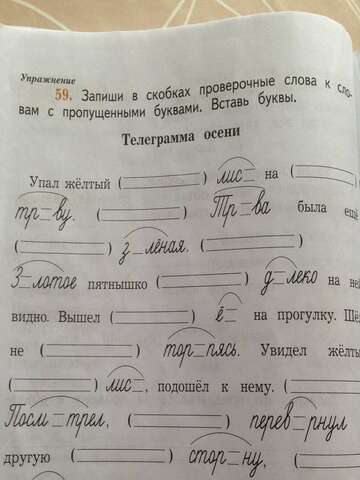 Упражнение
59. Запиши в скобках проверочные слова к сло-
вам с пропущенными буквами. Вставь буквы.
Телеграмма осени
Упал жёлтый (          ) лис_ на (
тр_ву. (          ) Тр_ва была ещё
(          ) з_лёная. (          )
З_лотое пятнышко (          ) д_леко на не
видно. Вышел (          ) ё_ на прогулку. Шё
не (          ) тор_пясь. Увидел жёлты
(          ) лис_, подошёл к нему. (
Посм_трел, (          ) перев_рнул
другую (          ) стор_ну, (